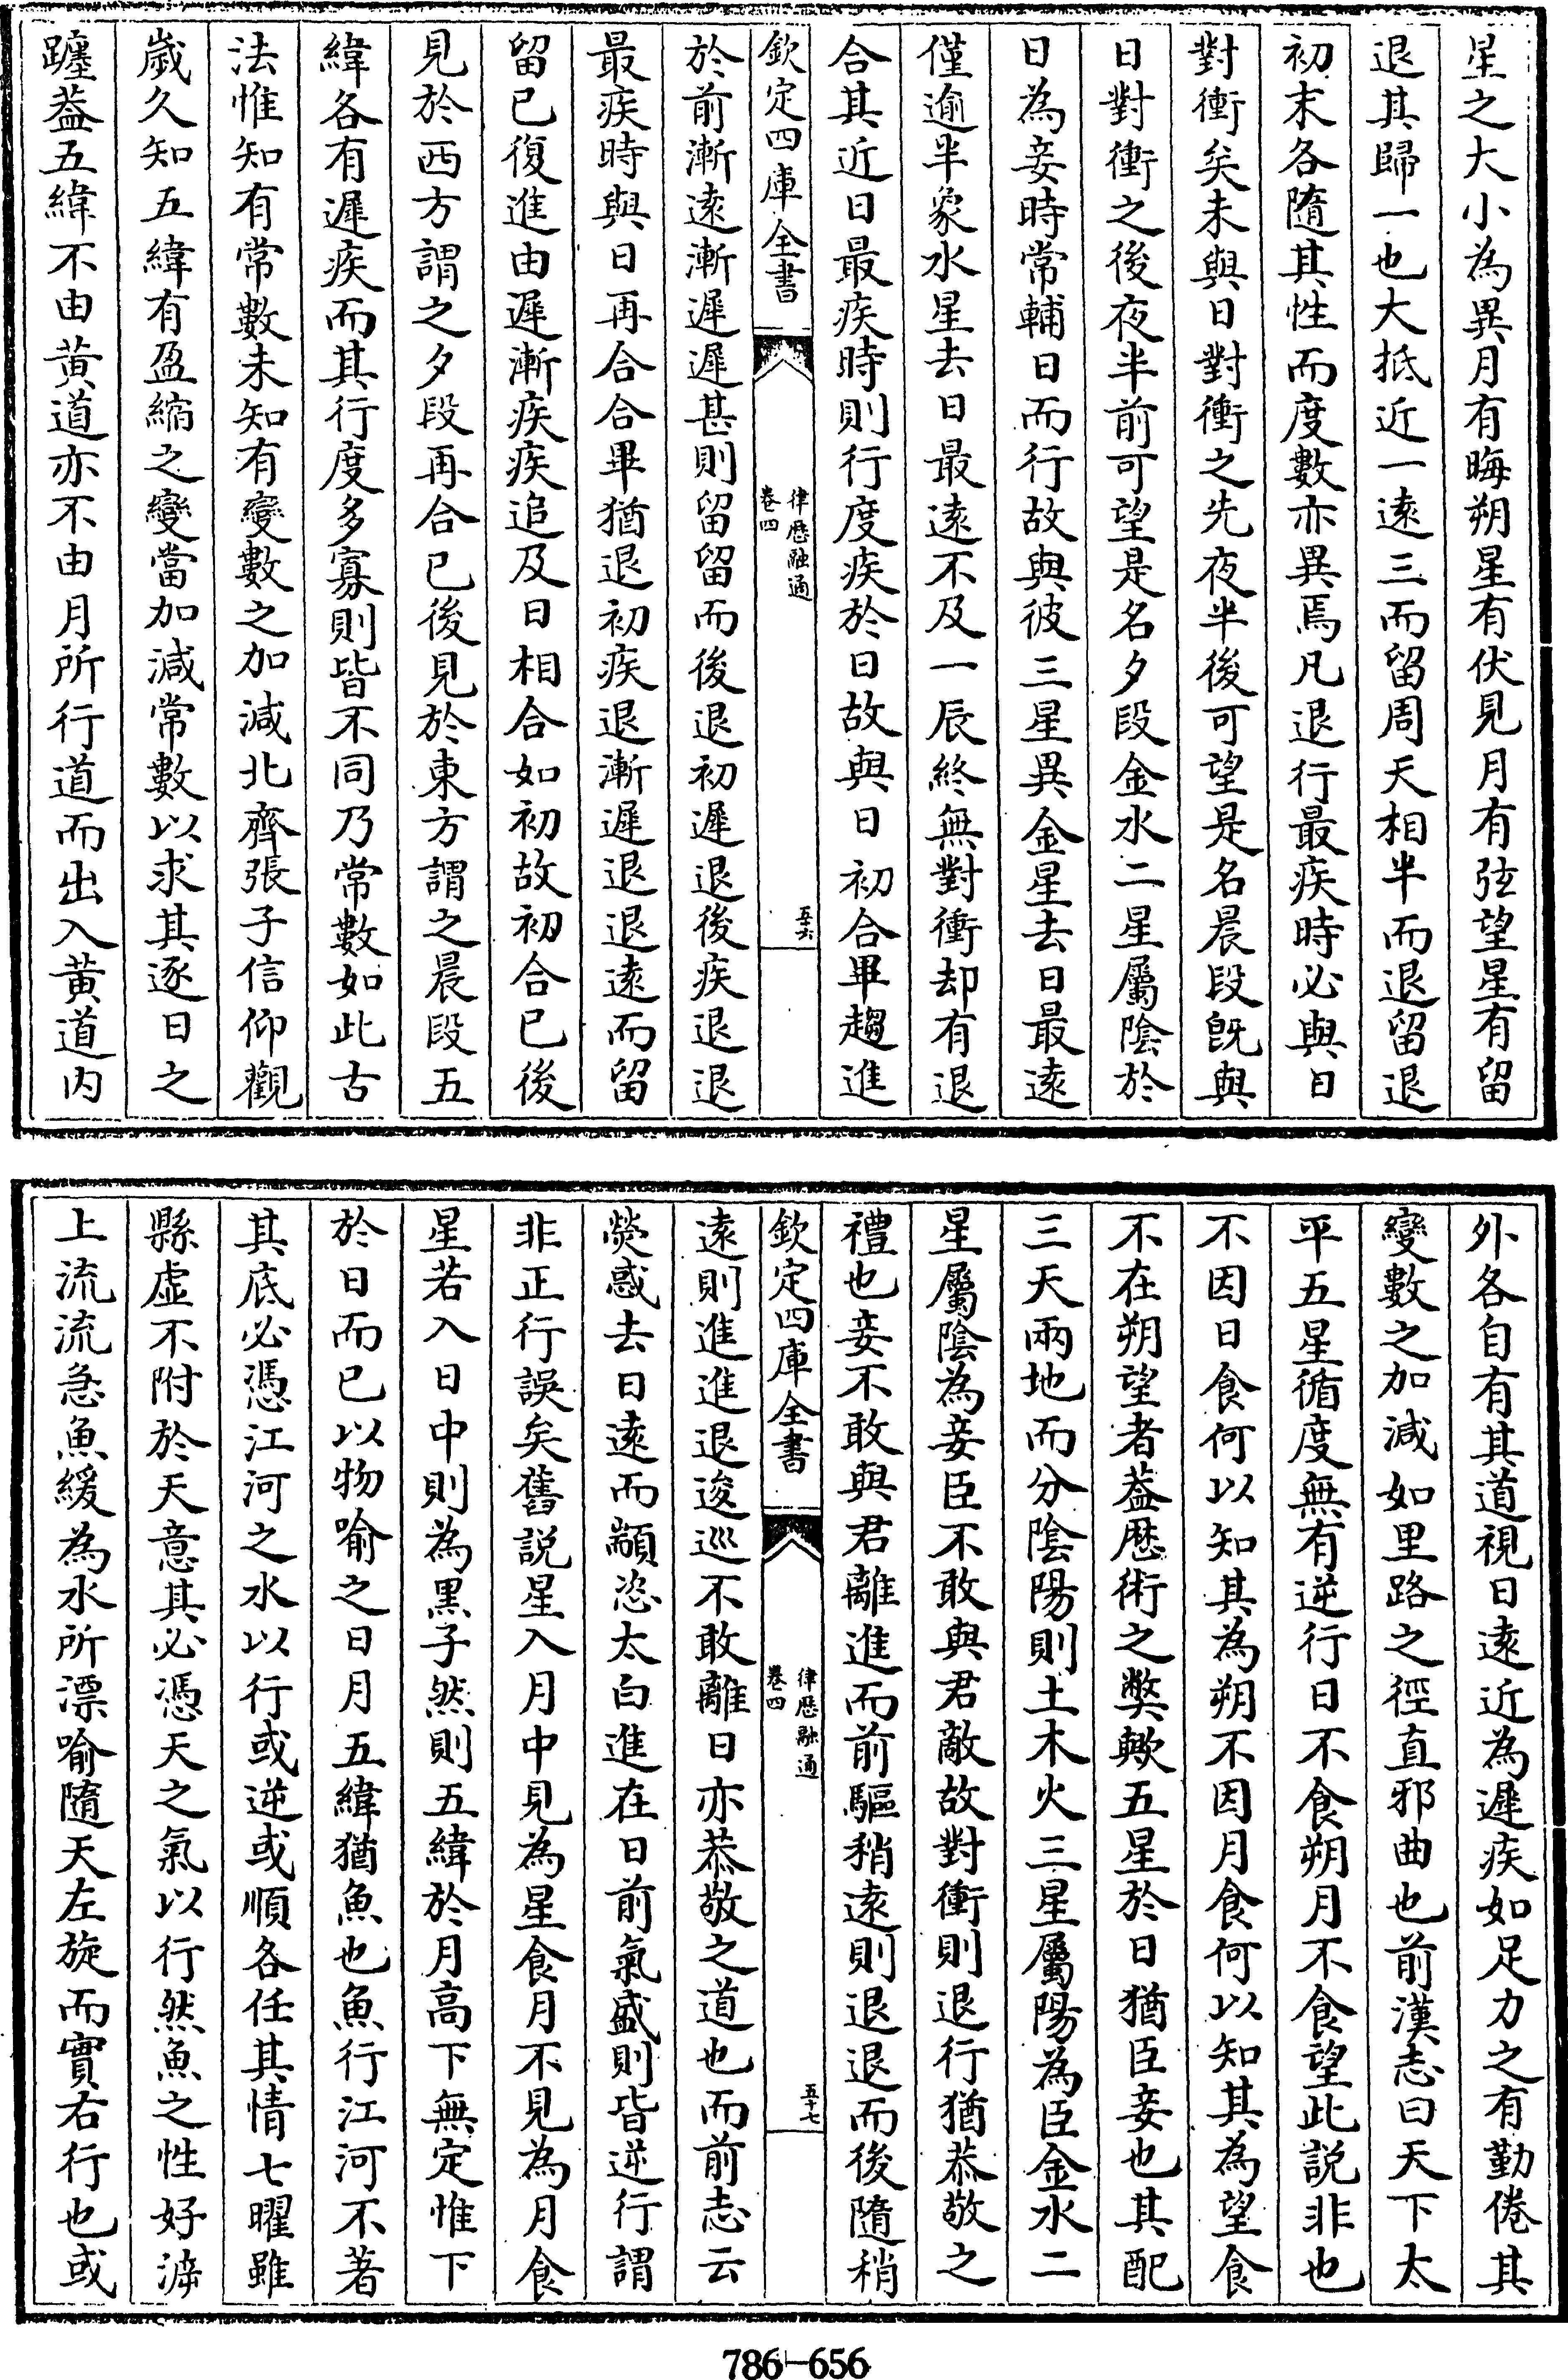 星之大小為異月有晦朔星有伏見月有弦望星有留
退其歸一也大抵近一遠三而留周天相半而退留退
初末各隨其性而度數亦異焉凡退行最疾時必與日
對衝矣未與日對衝之先夜半後可望是名晨段既與
日對衝之後夜半前可望是名夕段金水二星屬陰於
日為妾時常輔日而行故與彼三星異金星去日最遠
僅逾半象水星去日最遠不及一辰終無對衝却有退
合其近日最疾時則行度疾於日故與日初合畢趨進
欽定四庫全書
律歷融通
卷四
五十六
於前漸遠漸遲遲甚則留留而後退初遲退後疾退退
最疾時與日再合合畢猶退初疾退漸遲退退遠而留
留已復進由遲漸疾疾追及日相合如初故初合已後
見於西方謂之夕段再合已後見於東方謂之晨段五
緯各有遲疾而其行度多寡則皆不同乃常數如此古
法惟知有常數未知有變數之加減北齊張子信仰觀
歲久知五緯有盈縮之變當加減常數以求其逐日之
躔葢五緯不由黃道亦不由月所行道而出入黃道内
外各自有其道視日遠近為遲疾如足力之有勤倦其
變數之加減如里路之徑直邪曲也前漢志曰天下太
平五星循度無有逆行日不食朔月不食望此說非也
不因日食何以知其為朔不因月食何以知其為望食
不在朔望者葢歷術之獘歟五星於日猶臣妾也其配
三天兩地而分陰陽則土木火三星屬陽為臣金水二
星屬陰為妾臣不敢與君敵故對衝則退行猶恭敬之
禮也妾不敢與君離進而前驅稍遠則退退而後隨稍
欽定四庫全書
律歷融通
卷四
五十七
遠則進進退逡巡不敢離日亦恭敬之道也而前志云
熒惑去日遠而顓恣太白進在日前氣盛則皆逆行謂
非正行誤矣舊說星入月中見為星食月不見為月食
星若入日中則為黑子然則五緯於月高下無定惟下
於日而已以物喻之日月五緯猶魚也魚行江河不著
其底必憑江河之水以行或逆或順各任其情七曜雖
縣虛不附於天意其必憑天之氣以行然魚之性好泝
上流流急魚緩為水所漂喻隨天左旋而實右行也或
786-656